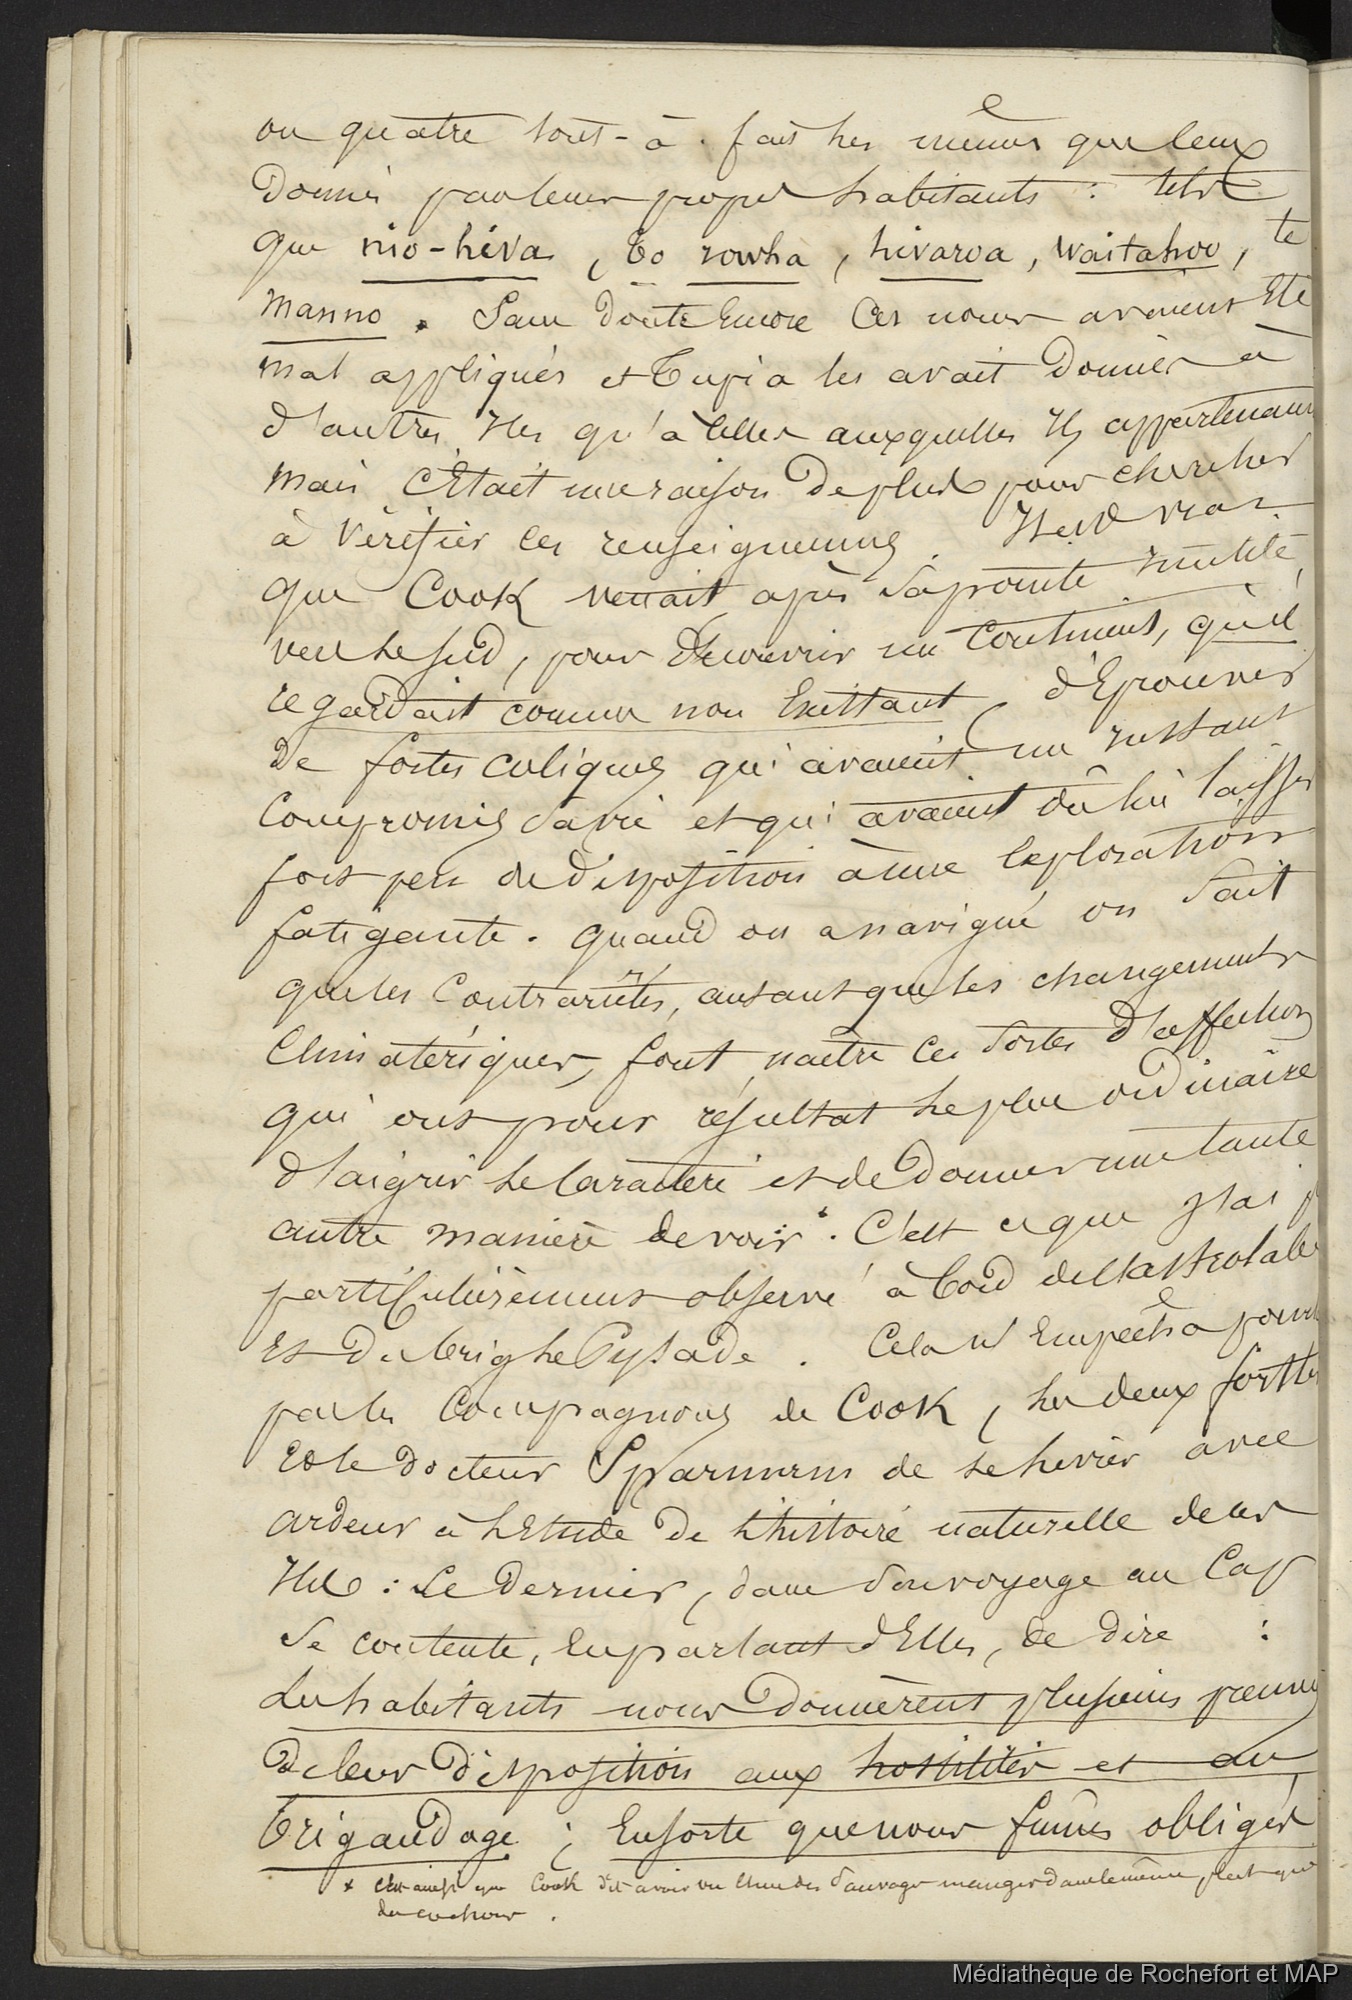 ou quatre tout-à-fait les mêmes que ceux
donnés par leurs propres habitants : tels
que nio-hiva, to rowha, hivaroa, Waitahoo, te
manno. Sans doute encore ces noms avaient été
mal appliqués et Tupia les avait donnés à
d'autres Iles qu'à celles auxquelles Ils appartenaient
mais c'était une raison de plus pour chercher
à vérifier ces renseignemens. Il est vrai
que Cook venait, après sa pointe inutile
vers le sud, pour découvrir un continent, qu'il
regardait comme non Existant, d'éprouver
de fortes coliques qui avaient un instant
compromis sa vie et qui avaient dû lui laisser
fort peu de disposition à une exploration
fatigante. quand on a navigué on sait
que les contrariétés, autant que les changements
climatériques, font naître ces sortes d'affections
qui ont pour résultat le plus ordinaire
d'aigrir le caractère et de donner une toute
autre manière de voir*. C'est ce que j'ai
particulièrement observé à bord de l'Astrolabe
et du brig le Pylade. Cela n'empêcha point
par les compagnons de Cook, les deux forster
et le docteur Sparmann de se livrer avec
ardeur à l'Etude de l'histoire naturelle de ces
Iles : Le dernier, dans son voyage au Cap
se contente, en parlant d'Elles, de dire :
Les habitants nous donnèrent plusieurs preuves
de leur disposition aux hostilités et au
brigandage ; Ensorte que nous fûmes obligés
* c'est ainsi que Cook dit avoir vu l'un des sauvages manger
du cochon.